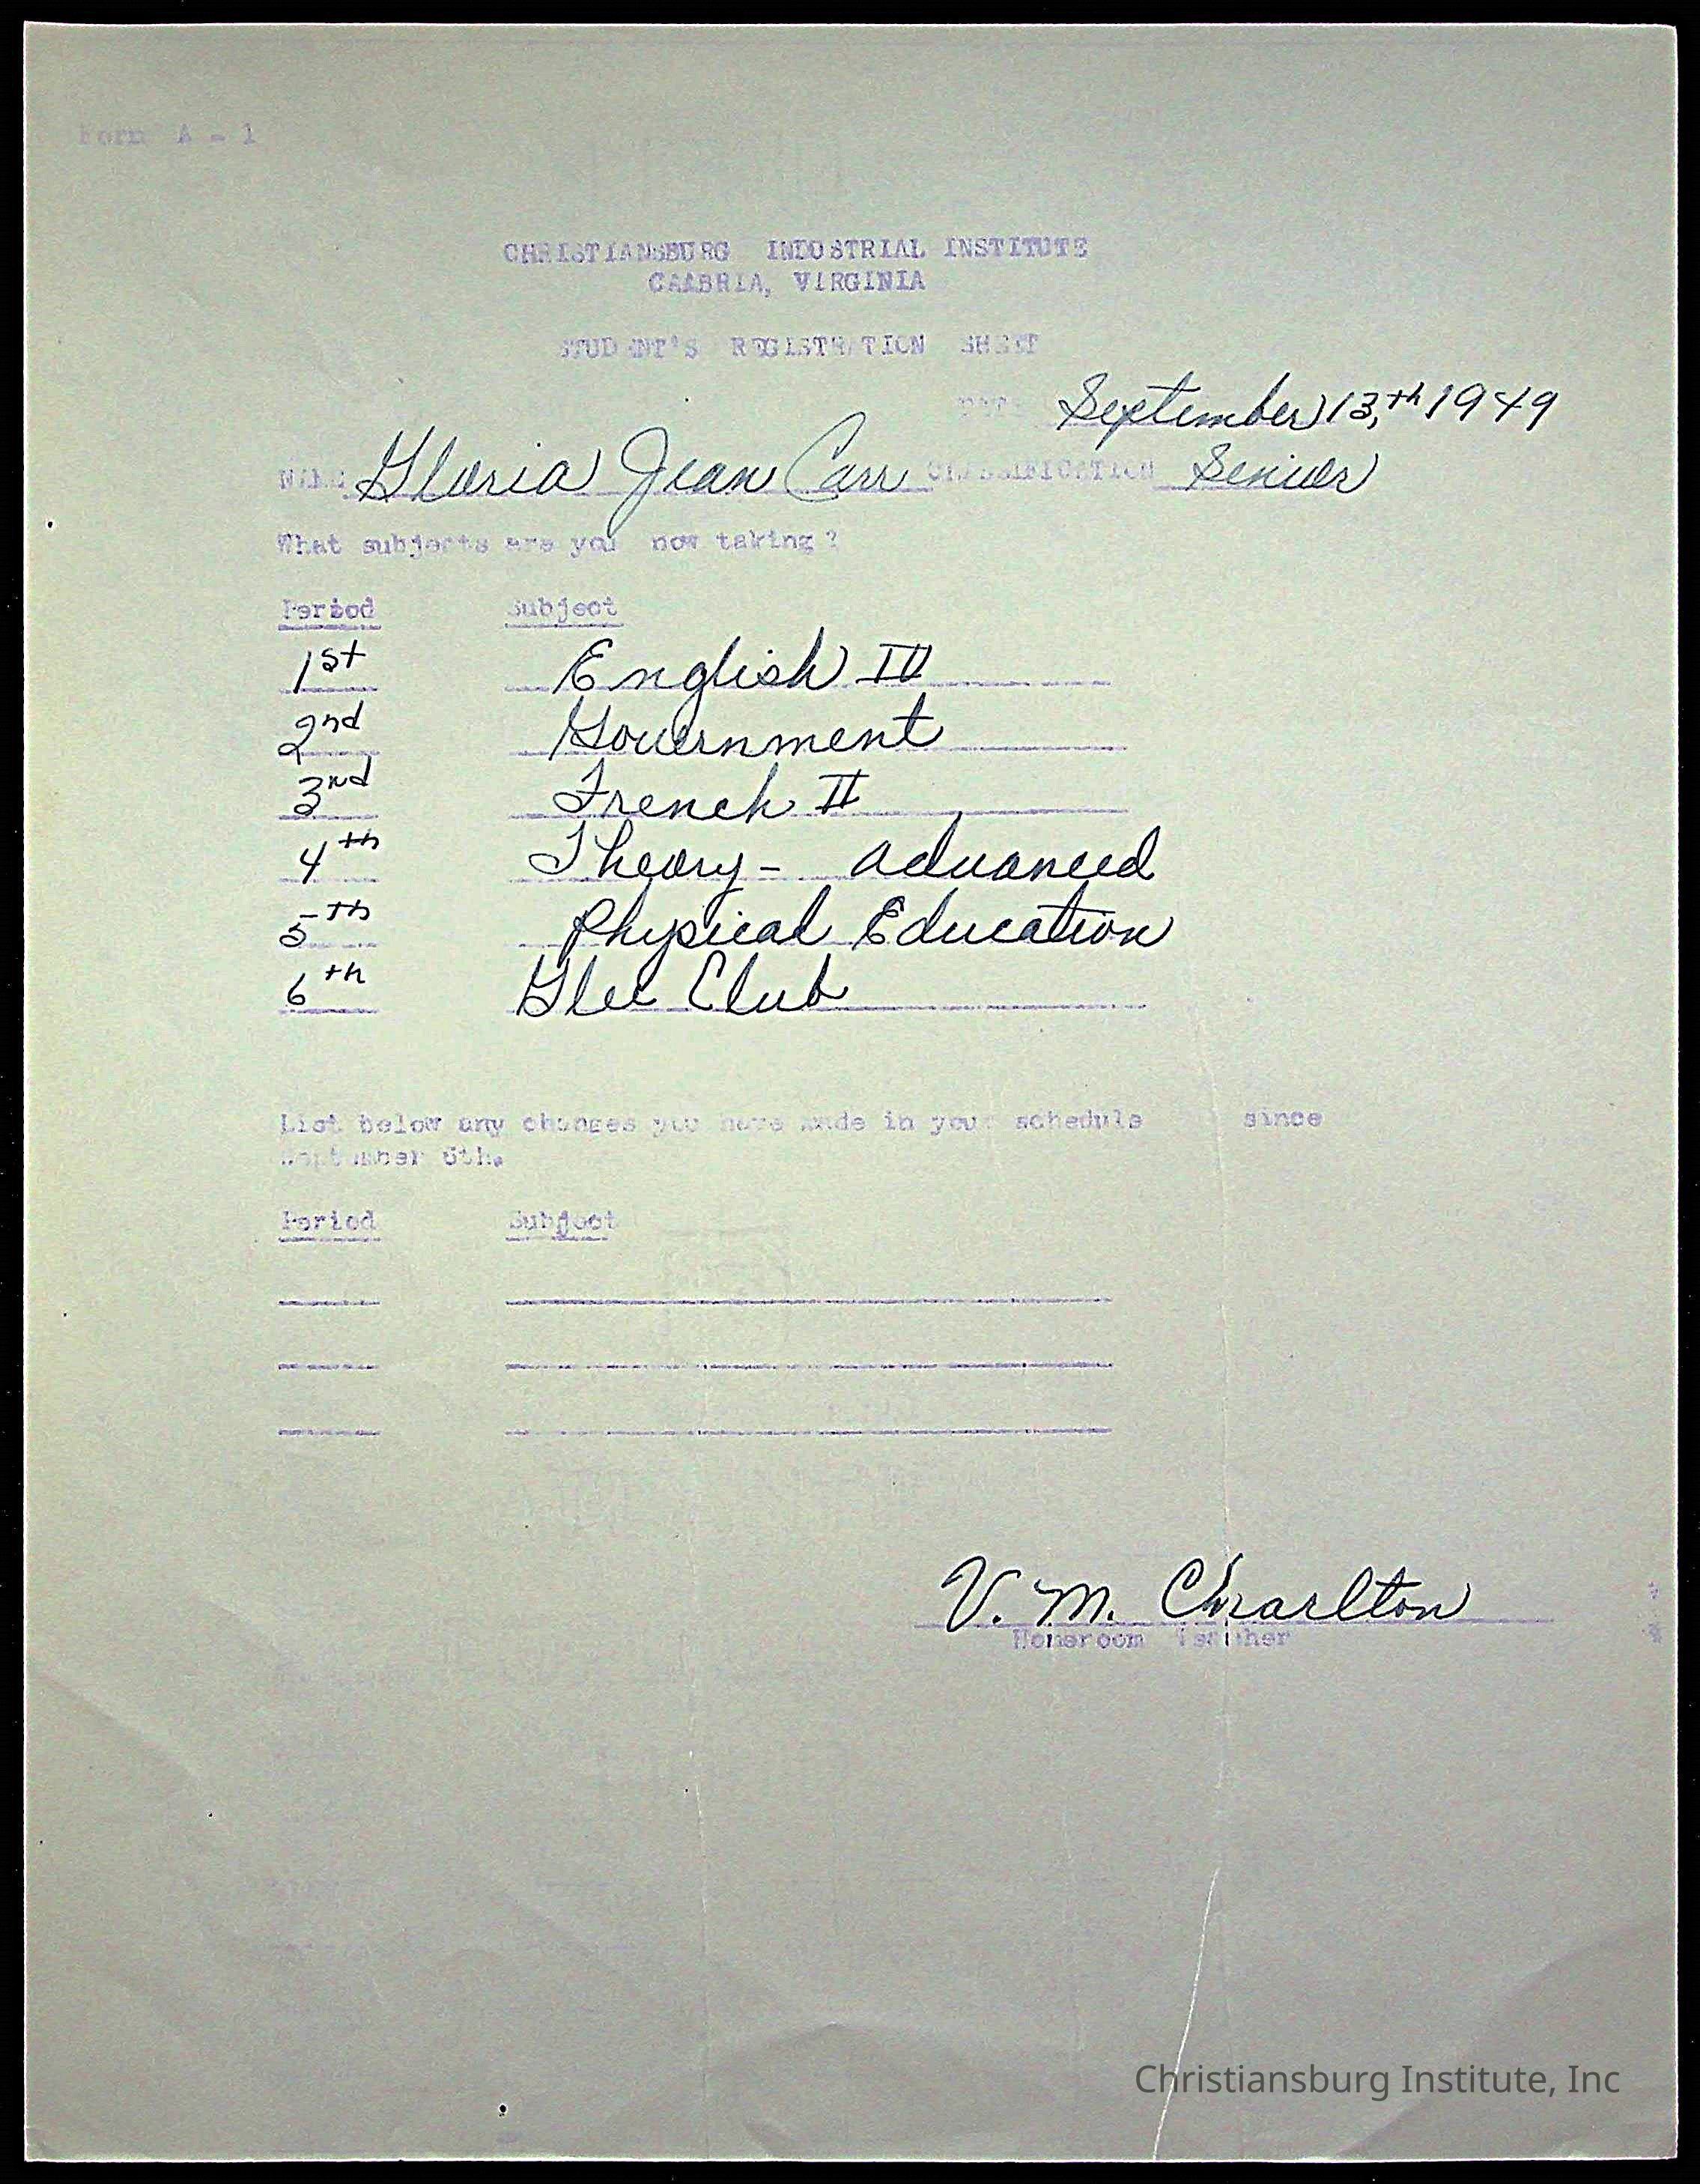 Form A - 1
CHRISTIANSBURG INDUSTRIAL INSTITUTE
CAMBRIA, VIRGINIA
STUDENT'S REGISTRATION SHEET
DATE September 13,th 1949
NAME Gloria Jean Carr CLASSIFICATION Senior
What subjects are you now taking?
Period Subject
1st English IV
2nd Government
3nd French II
4th Theory - advanced
5th Physical Education
6th Glee Club
List below any changes you have made in your schedule since
September 6th.
Period Subject
V. M. Charlton
Homeroom Teacher
Christiansburg Institute, Inc